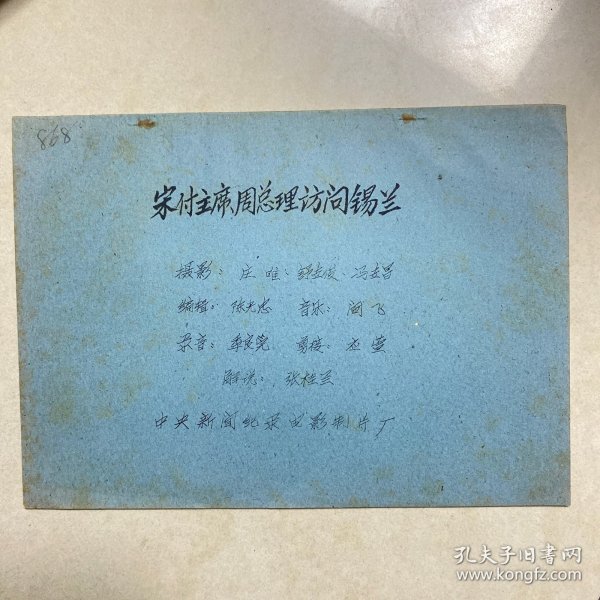 868
宋付主席、周总理访问锡兰
摄影: 庄唯、 冯
编辑: 陈光忠 音乐: 阎飞
录音:
解说: 张桂兰
中央新闻纪录电影制片厂
孔夫子旧书网
www.kongfz.com